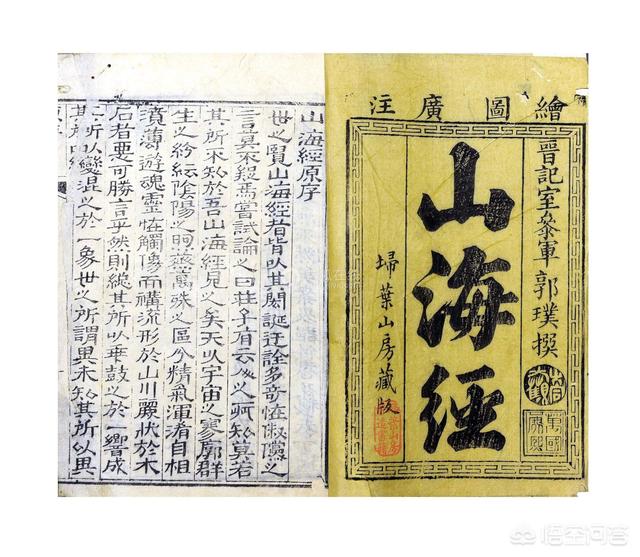 繪圖廣注
晉記室叅軍 郭璞撰
山海經
埽葉山房藏版
山海經原序
世之覽山海經者皆以其閎誕迂誇多奇怪俶儻之
言莫不疑焉嘗試論之曰莊子有云人之所知莫若
其所不知於吾山海經見之矣夫以宇宙之寥廓群
生之紛紜陰陽之煦蒸萬殊之區分精氣渾淆自相
濆薄遊魂靈怪觸像而構流形於山川麗狀於木
石者惡可勝言乎然則總其所以乖鼓之於一響成
其所以變混之於一象世之所謂異未知其所以異
悟空问答